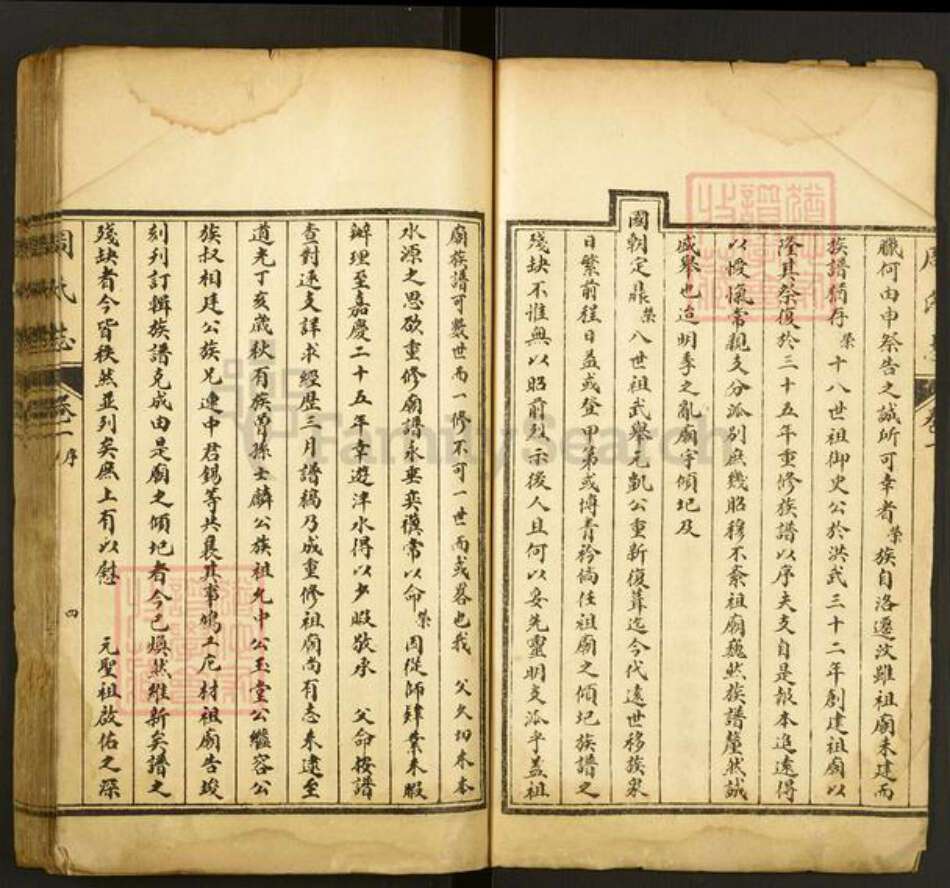 職何由申祭告之誠所可幸者榮族自洛遷汶雖祖廟未建而
族譜猶存榮十八世祖御史公於洪武三十二年創建祖廟以
隆其祭復於三十五年重修族譜以序夫支自是報本追遠得
以慢愾常親支分派別庶幾昭穆不紊祖廟巍然族譜釐然誠
盛舉也迨明季之亂廟宇傾圮及
國朝定鼎榮八世祖武舉元凱公重新復葺迄今代遠世移族衆
日繁前程日益或登甲第或博青衿倘任祖廟之傾圮族譜之
殘缺不惟無以昭前烈示後人且何以妥先靈明支派乎蓋祖
廟族譜可數世而一修不可一世而或畧也我 父久切木本
水源之思欲重修廟譜永垂奕禩常以命榮因從師肄業未暇
辦理至嘉慶二十五年幸遊泮水得以少暇敬承 父命按譜
查對逐支詳求經歷三月譜稿乃成重修祖廟尚有志未逮至
道光丁亥歲秋有族曾孫士麟公族祖允中公玉堂公繼容公
族叔相廷公族兄連中君錫等共襄其事鳩工庀材祖廟告竣
刻刊訂輯族譜克成由是廟之傾圮者今已煥然維新矣譜之
殘缺者今皆秩然並列矣庶上有以慰 元聖祖啟佑之深
周氏誌
卷一 序
四
FamilySearch